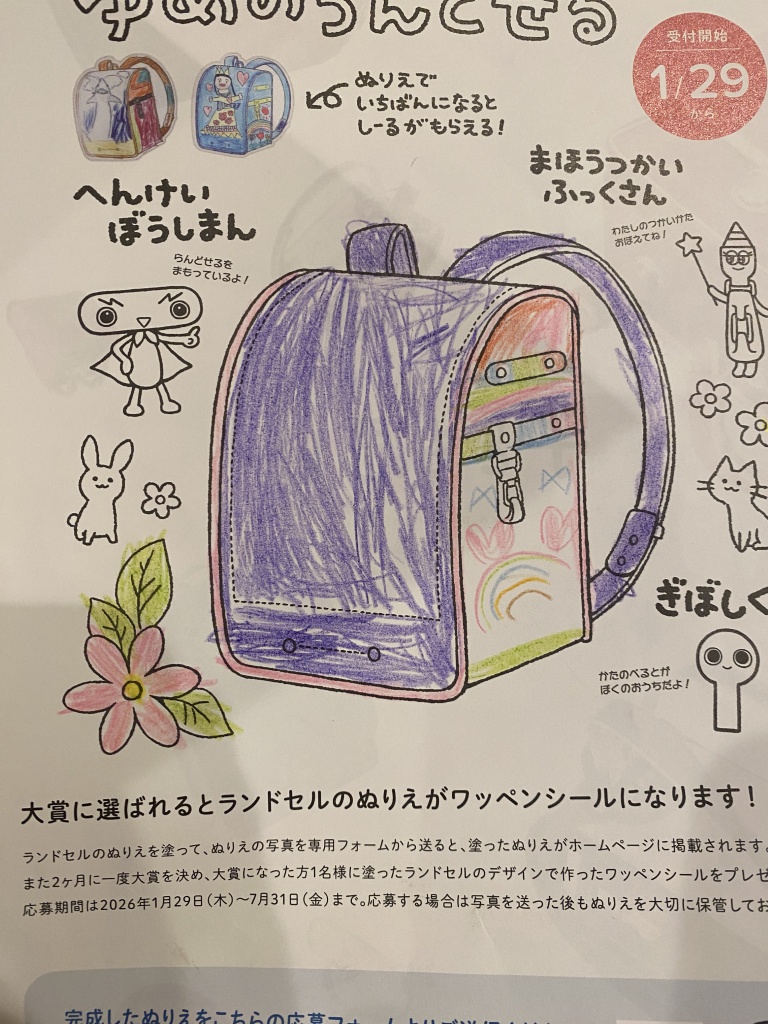 ゆめのらんどせる
受付開始
1/29
から
ぬりえで
いちばんになると
しーるがもらえる！
まほうつかい
ふっくさん
わたしのつかいかた
おぼえてね！
へんけい
ぼうしまん
らんどせるを
まもっているよ！
ぎぼしく
かたのべるとが
ぼくのおうちだよ！
大賞に選ばれるとランドセルのぬりえがワッペンシールになります！
ランドセルのぬりえを塗って、ぬりえの写真を専用フォームから送ると、塗ったぬりえがホームページに掲載されます。
また2ヶ月に一度大賞を決め、大賞になった方1名様に塗ったランドセルのデザインで作ったワッペンシールをプレゼ
応募期間は2026年1月29日（木）〜7月31日（金）まで。応募する場合は写真を送った後もぬりえを大切に保管してお
完成したぬりえをこちらの応募フォームより